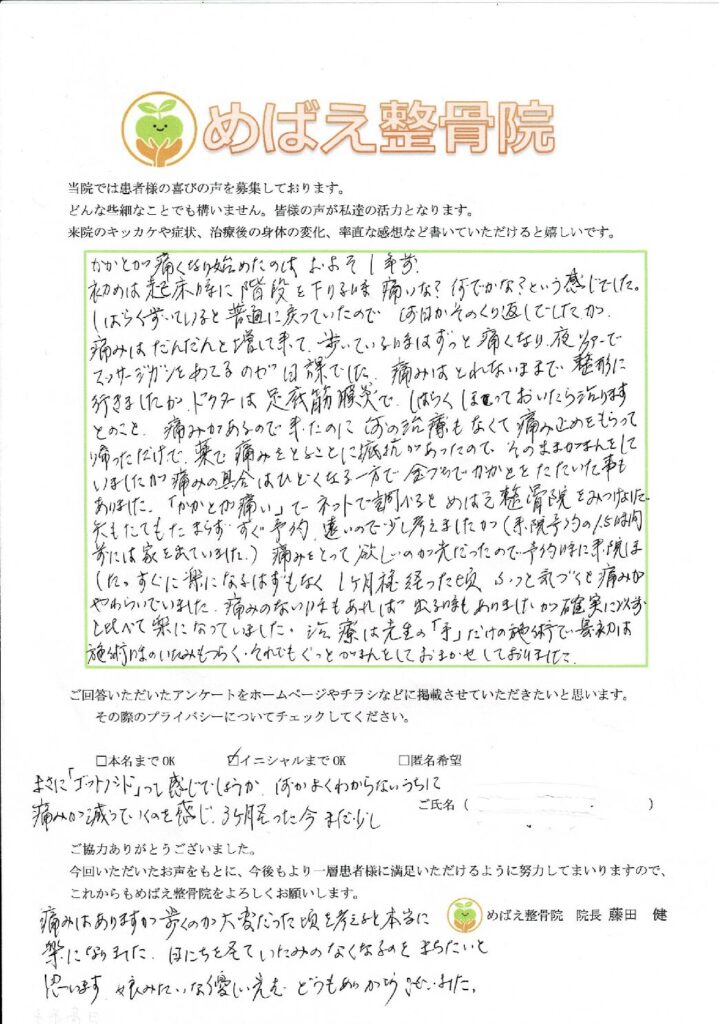 めばえ整骨院
当院では患者様の喜びの声を募集しております。
どんな些細なことでも構いません。皆様の声が私達の活力となります。
来院のキッカケや症状、治療後の身体の変化、率直な感想など書いていただけると嬉しいです。
かかとが痛くなり始めたのは およそ1年前、
初めは起床時に階段を下りる時 痛いな？何でかな？という感じでした。
しばらく歩いていると普通に戻っていたので 何日かそのくり返しでしたが、
痛みはだんだんと増して来て、歩いている時はずっと痛くなり、夜ソファーで
マッサージガンをあてるのが日課でした。痛みはとれないままで、整形に
行きましたが、ドクターは足底筋膜炎で、しばらくほっておいたら治ります
とのこと、痛みがあるので来たのに 何の治療もなくて痛み止めをもらって
帰っただけで、薬で痛みをとることに抵抗があったので、そのままがまんをして
いましたが痛みの具合はひどくなる一方で 金づちでかかとをたたいた事も
ありました。「かかとが痛い」でネットで調べると めばえ整骨院をみつけました
矢もたてもたまらず すぐ予約、遠いので少し考えましたが（来院予約の1.5時間
前には家を出ていました。）痛みをとって欲しいのが先だったので予約時に来院しま
した。すぐに楽になるはずもなく 1ヶ月程経った頃 ふっと気づくと痛みが
やわらいでいました。痛みのない日もあれば 出る時もありましたが確実に以前
と比べて楽になっていました。治療は先生の「手」だけの施術で最初は
施術時のいたみもつらく、それでもぐっとがまんをしておまかせしておりました
ご回答いただいたアンケートをホームページやチラシなどに掲載させていただきたいと思います。
その際のプライバシーについてチェックしてください。
□本名までOK ☑イニシャルまでOK □匿名希望
まさに「ゴットハンド」って感じでしょうか、何かよくわからないうちに
ご氏名（ ）
痛みが減っていくのを感じ、3ヶ月経った今 まだ少し
ご協力ありがとうございました。
今回いただいたお声をもとに、今後もより一層患者様に満足いただけるように努力してまいりますので、
これからもめばえ整骨院をよろしくお願いします。
めばえ整骨院 院長 藤田 健
痛みはありますが歩くのが大変だった頃を考えると本当に
楽になりました。日にちを見ていたみのなくなるのを まちたいと
思います。娘みたいな優しい先生 どうもありがとうございました。